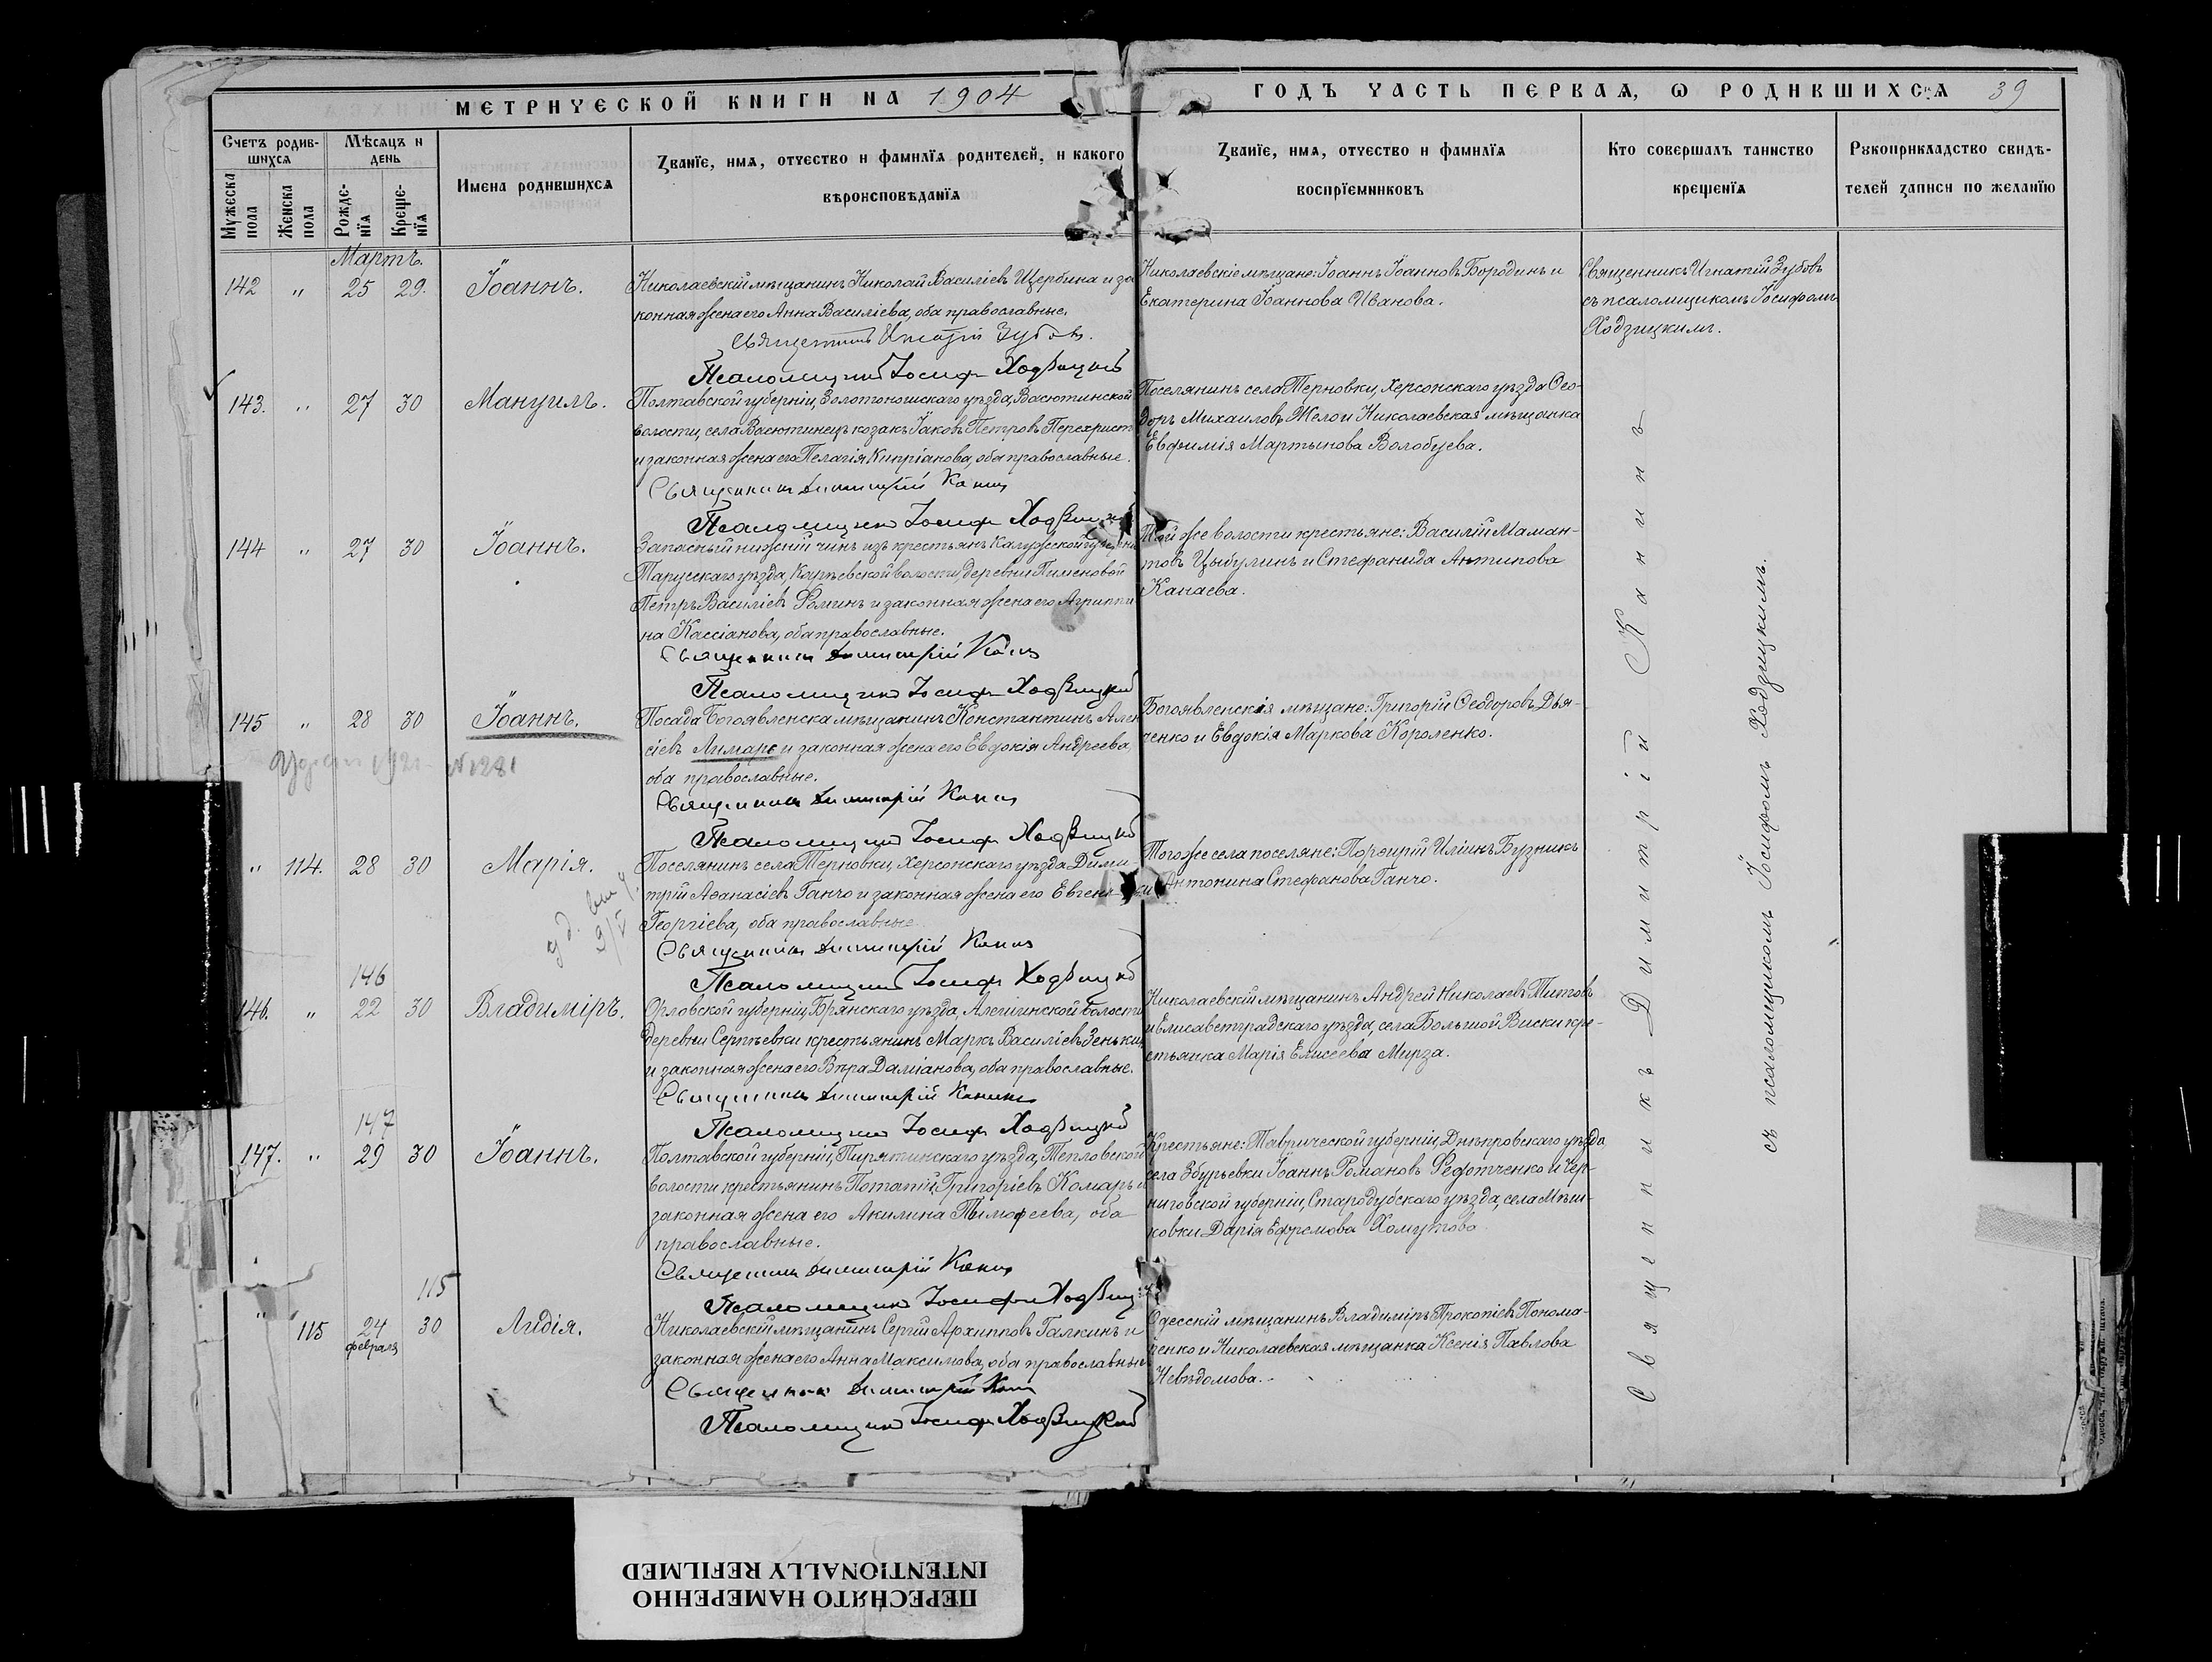 МЕТРИЧЕСКОЙ КНИГИ НА 1904
ГОДЪ ЧАСТЬ ПЕРВАЯ, Ѡ РОДИВШИХСЯ 39
Счетъ родив-
шихся
Мужеска
пола
Женска
пола
Мѣсяцъ и
день
Рожде-
нія
Креще-
нія
Имена родившихся
Званіе, имя, отчество и фамилія родителей, и какого
вѣроисповѣданія
Званіе, имя, отчество и фамилія
воспріемниковъ
Кто совершалъ таинство
крещенія
Рукоприкладство свидѣ-
телей записи по желанію
Мартъ.
142 " 25 29. Іоаннъ.
Николаевскій мѣщанинъ Николай Василіевъ Щербина и за
конная жена его Анна Василіева, оба православные.
Священникъ Игнатій Зубовъ.
Псаломщикъ Іосифъ Ходзицкій
Николаевскіе мѣщане: Іоаннъ Іоанновъ Бородинъ и
Екатерина Іоаннова Иванова.
Священникъ Игнатій Зубовъ
съ псаломщикомъ Іосифомъ
Ходзицкимъ.
143. " 27 30 Мануилъ.
Полтавской губерніи, Золотоношскаго уѣзда, Васютинской
волости, села Васютинецъ козакъ Іаковъ Петровъ Перехрист
и законная жена его Пелагія Кипріанова, оба православные.
Священникъ Димитрій Канин
Псаломщикъ Іосифъ Ходзицкій
Поселянинъ села Терновки, Херсонскаго уѣзда Ѳео-
доръ Михаиловъ Желои Николаевская мѣщанка
Евфимія Мартынова Волобуева.
144 " 27 30 Іоаннъ.
Запасный нижній чинъ изъ крестьянъ Калужской губерни
Тарусскаго уѣзда, волости, деревни Пименовой
Петръ Василіевъ Фоминъ и законная жена его Агриппи
на Кассіанова, оба православные.
Священникъ Димитрій Канин
Псаломщикъ Іосифъ Ходзицкій
Той же волости крестьяне: Василій Маман-
товъ Цыбулинъ и Стефанида Антипова
Канаева.
145 " 28 30 Іоаннъ.
Посада Богоявленска мѣщанинъ Константинъ Алек
сіевъ Лимарь и законная жена его Евдокія Андреева,
оба православные.
Священникъ Димитрій Канин
Псаломщикъ Іосифъ Ходзицкій
Богоявленскія мѣщане: Григорій Ѳеодоровъ Дья-
ченко и Евдокія Маркова Короленко.
1921 № 1281
" 114. 28 30 Марія.
Поселянинъ села Терновки, Херсонскаго уѣзда Дими-
трій Аѳанасіевъ Ганчо и законная жена его Евгенія
Георгіева, оба православные.
Священникъ Димитрій Канин
Псаломщикъ Іосифъ Ходзицкій
Того же села поселяне: Порфирій Иліинъ Бузникъ
и Антонина Стефанова Ганчо.
146
146. " 22 30 Владиміръ.
Орловской губерніи, Брянскаго уѣзда, волости
деревни Сергѣевки крестьянинъ Маркъ Василіевъ Зенькин
и законная жена его Вѣра Даміанова, оба православные.
Священникъ Димитрій Канинъ
Псаломщикъ Іосифъ Ходзицкій
Николаевскій мѣщанинъ Андрей Николаевъ Титовъ
и Елисаветградскаго уѣзда, села Большой Виски кре-
стьянка Марія Елисеева Мирза.
147
147. " 29 30 Іоаннъ.
Полтавской губерніи, Пирятинскаго уѣзда, Тепловской
волости крестьянинъ Потапій Григоріевъ Комаръ и
законная жена его Акилина Тимофеева, оба
православные.
Священникъ Димитрій Канин
Псаломщикъ Іосифъ Ходзицкій
Крестьяне: Таврической губерніи, Днѣпровскаго уѣзда,
села Збурьевки Іоаннъ Романовъ Федотченко и Чер-
ниговской губерніи, Стародубскаго уѣзда, села Миш-
ковки Дарія Ефремова Хомутова.
115
" 115 24 февраля 30 Лидія.
Николаевскій мѣщанинъ Сергій Архипповъ Галкинъ и
законная жена его Анна Максимова, оба православные
Священникъ Димитрій Канин
Псаломщикъ Іосифъ Ходзицкій
Одесскій мѣщанинъ Владиміръ Прокопіевъ Понома-
ренко и Николаевская мѣщанка Ксенія Павлова
Невѣдомова.
Священникъ Димитрій Канинъ
съ псаломщикомъ Іосифомъ Ходзицкимъ.
ПЕРЕСНЯТО НАМЕРЕННО
INTENTIONALLY REFILMED